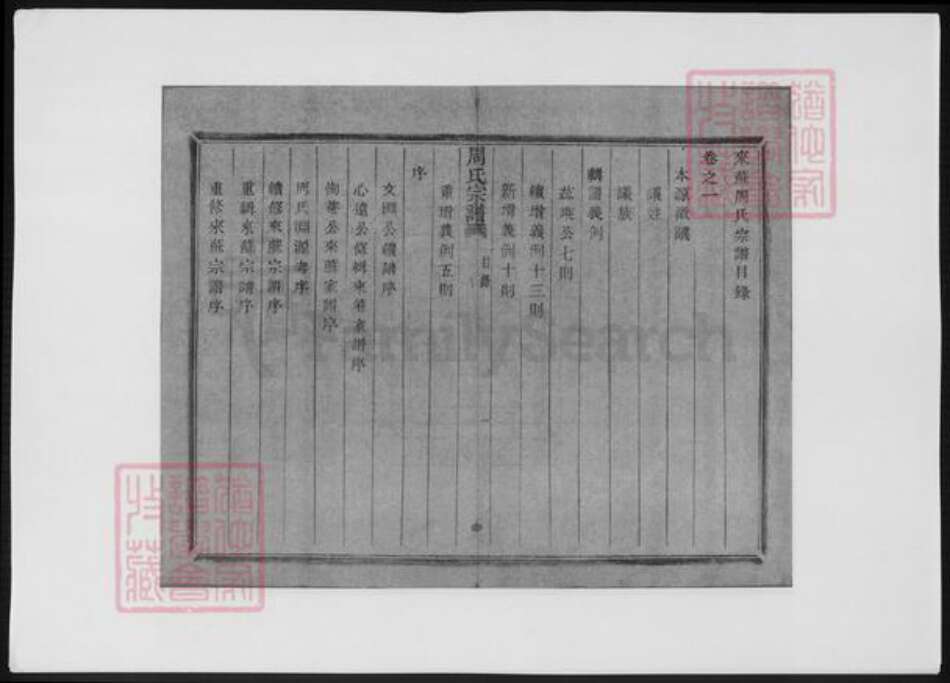 來蘇周氏宗譜目錄
卷之一
水源徵議
議姓
議族
輯譜義例
莊英公七則
續增義例十三則
新增義例十則
周氏宗譜
目錄
重增義例五則
序
文淵公續譜序
心遠公修輯來蘇家譜序
公來蘇家譜序
周氏淵源考序
續修來蘇宗譜序
重輯來蘇宗譜序
重修來蘇宗譜序
FamilySearch